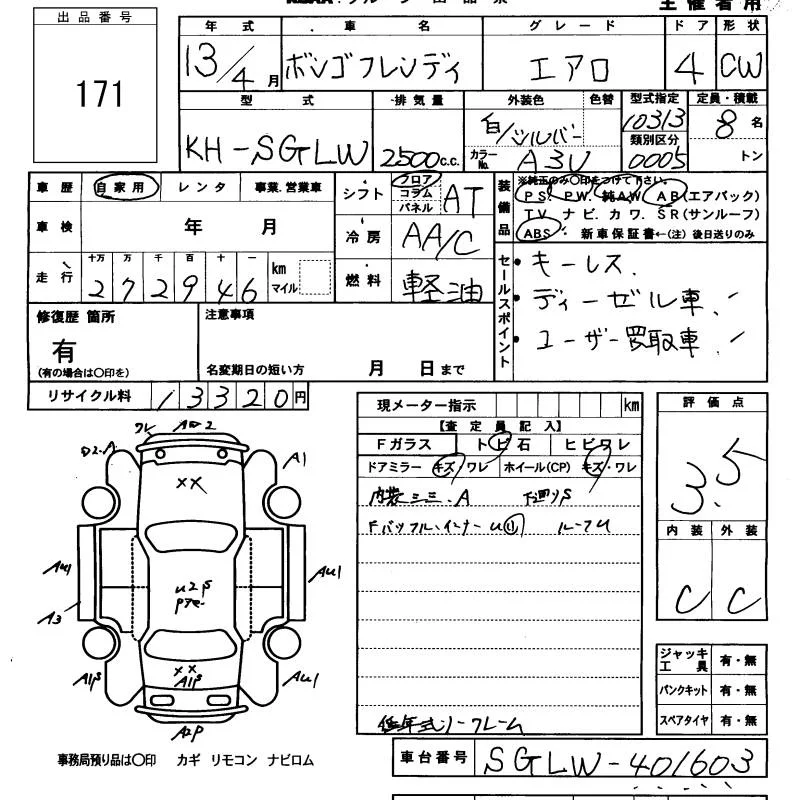 出品番号
171
年式 車名 グレード ドア 形状
13/4月 ボンゴフレンディ エアロ 4 CW
型式 排気量 外装色 色替 型式指定 定員・積載
KH-SGLW 2500c.c. 白/シルバー 10313 8名
カラーNo. A3V 類別区分 0005 トン
車歴 自家用 レンタ 事業.営業車
シフト フロア コラム パネル AT
装備品 ※純正のみ〇印をつけて下さい。
PS. PW. 純AW. AB(エアバック)
TV. ナビ. カワ. SR(サンルーフ)
ABS 新車保証書←(注)後日送りのみ
車検 年 月
冷房 AA/C
走行 十万 万 千 百 十 一 km マイル
272946
燃料 軽油
セールスポイント
・キーレス.
・ディーゼル車.
・ユーザー買取車.
修復歴 箇所 有 (有の場合は〇印を)
注意事項
名変期日の短い方 月 日まで
リサイクル料 13320円
現メーター指示 km
【査定員記入】
Fガラス トビ石 ヒビワレ
ドアミラー キズ・ワレ ホイール(CP) キズ・ワレ
内装 A 下廻りS
評価点
3.5
内装 外装
C C
ワレ A
A1
XX
AU1
AU1
A3
U2
XX
A1S
A1S
AU1
A2P
ジャッキ工具 有・無
パンクキット 有・無
スペアタイヤ 有・無
低年式
事務局預り品は〇印 カギ リモコン ナビロム
車台番号 SGLW-401603